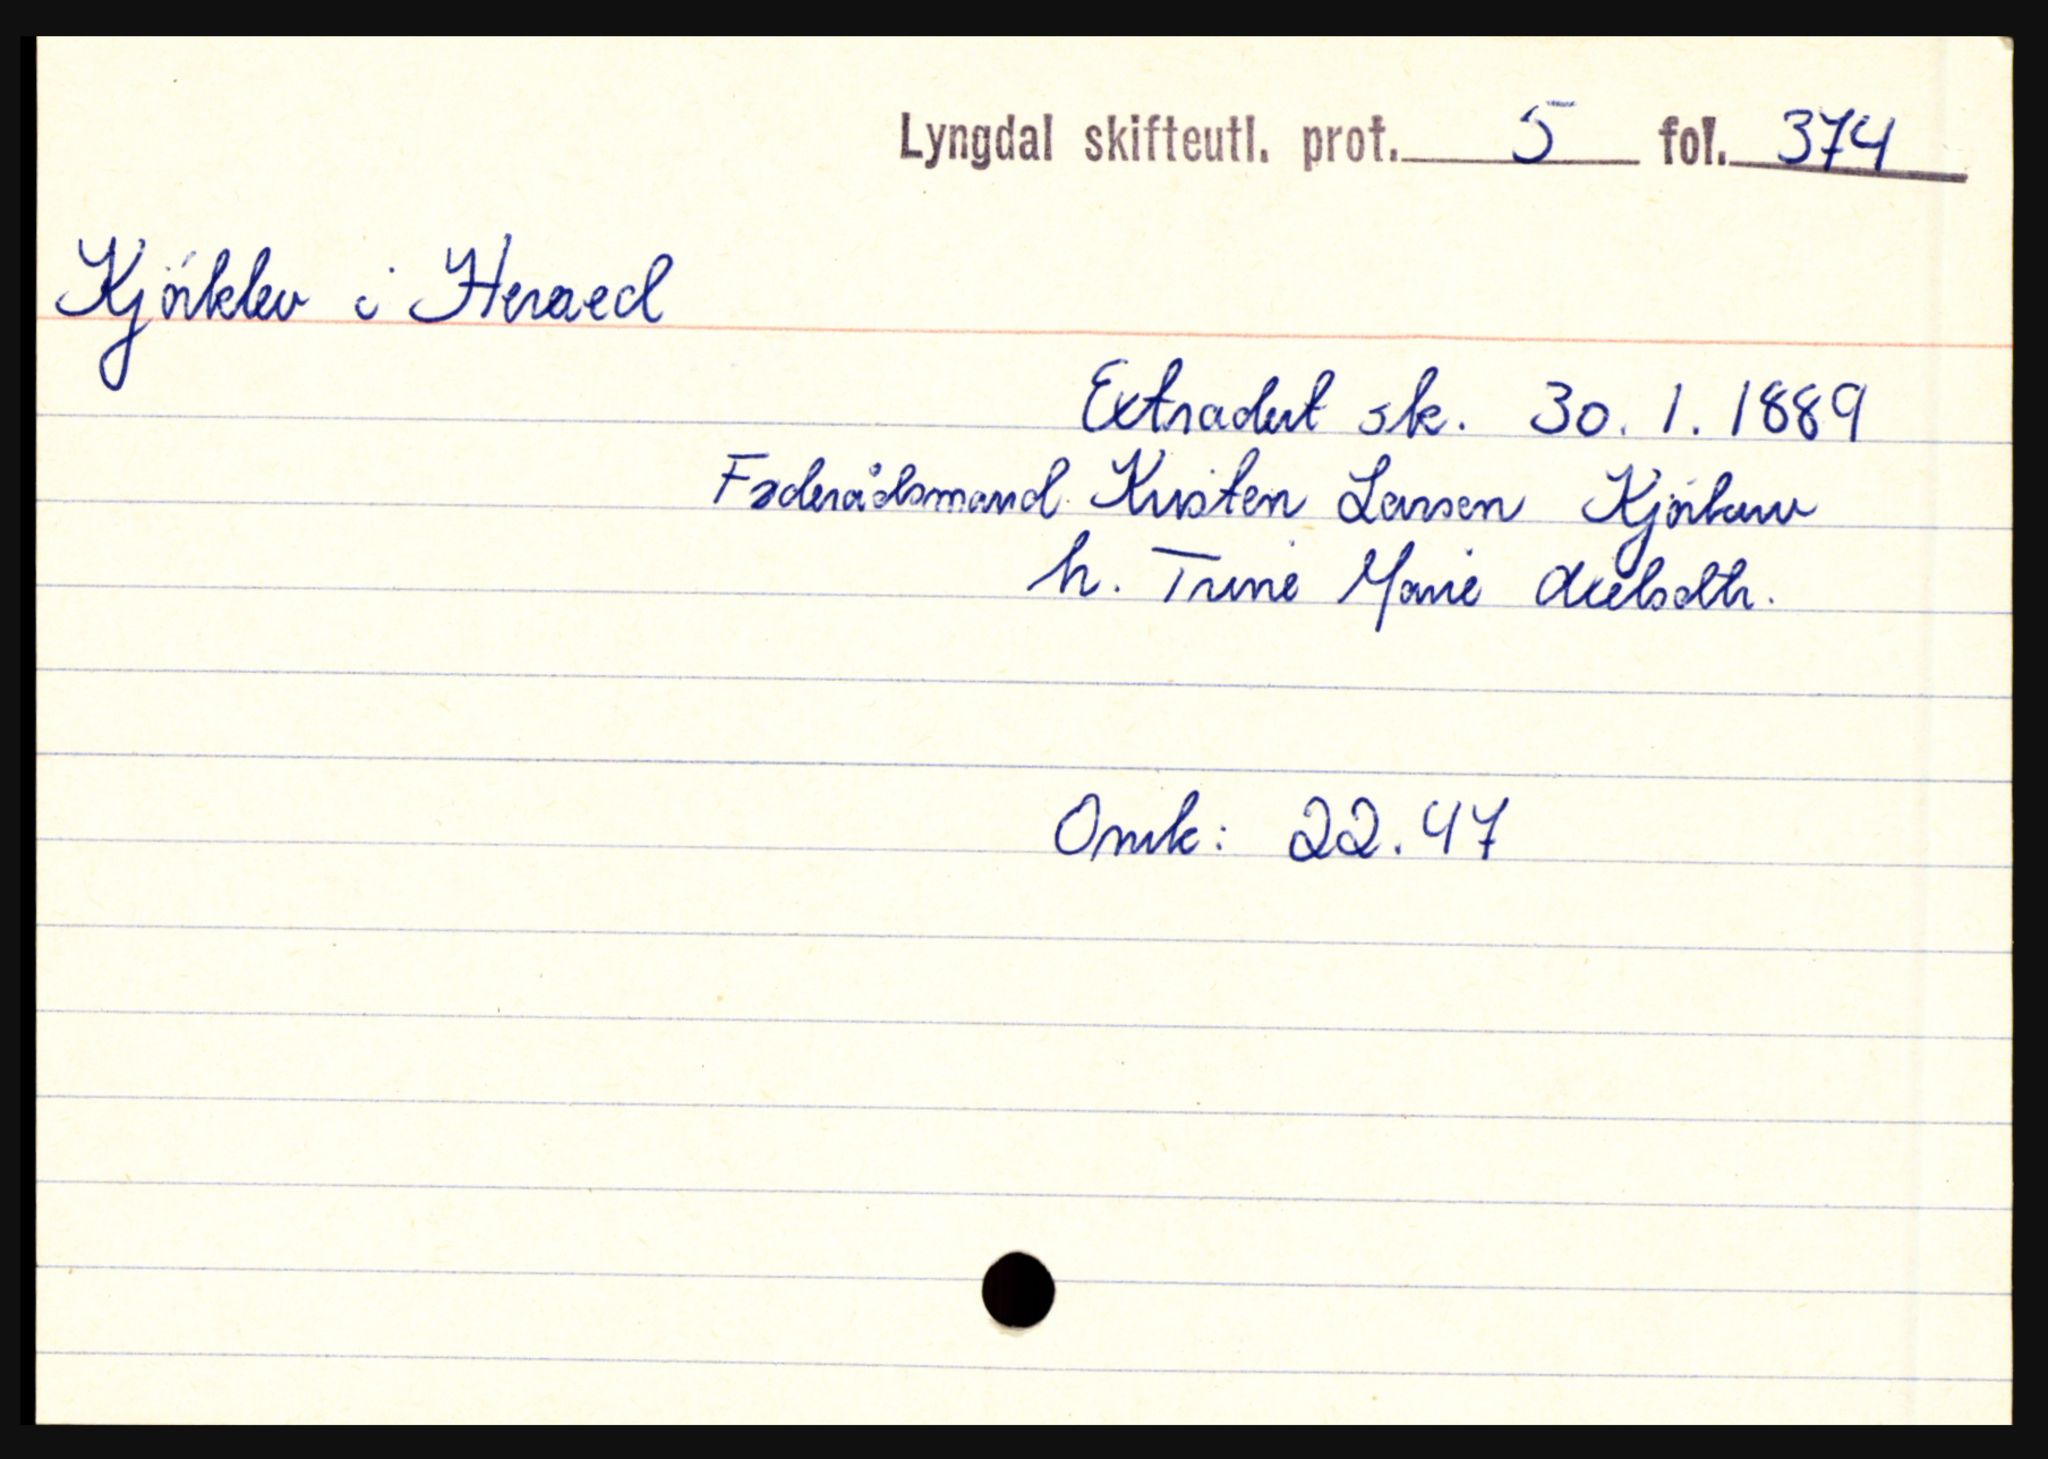 Lyngdal skifteutl. prot. 5 fol. 374
Kjörklev i Heraed
Extradert sk. 30.1.1889
Føderådsmand Kristen Larsen
h. Trine Marie Axelsdtr.
Omk: 22.47